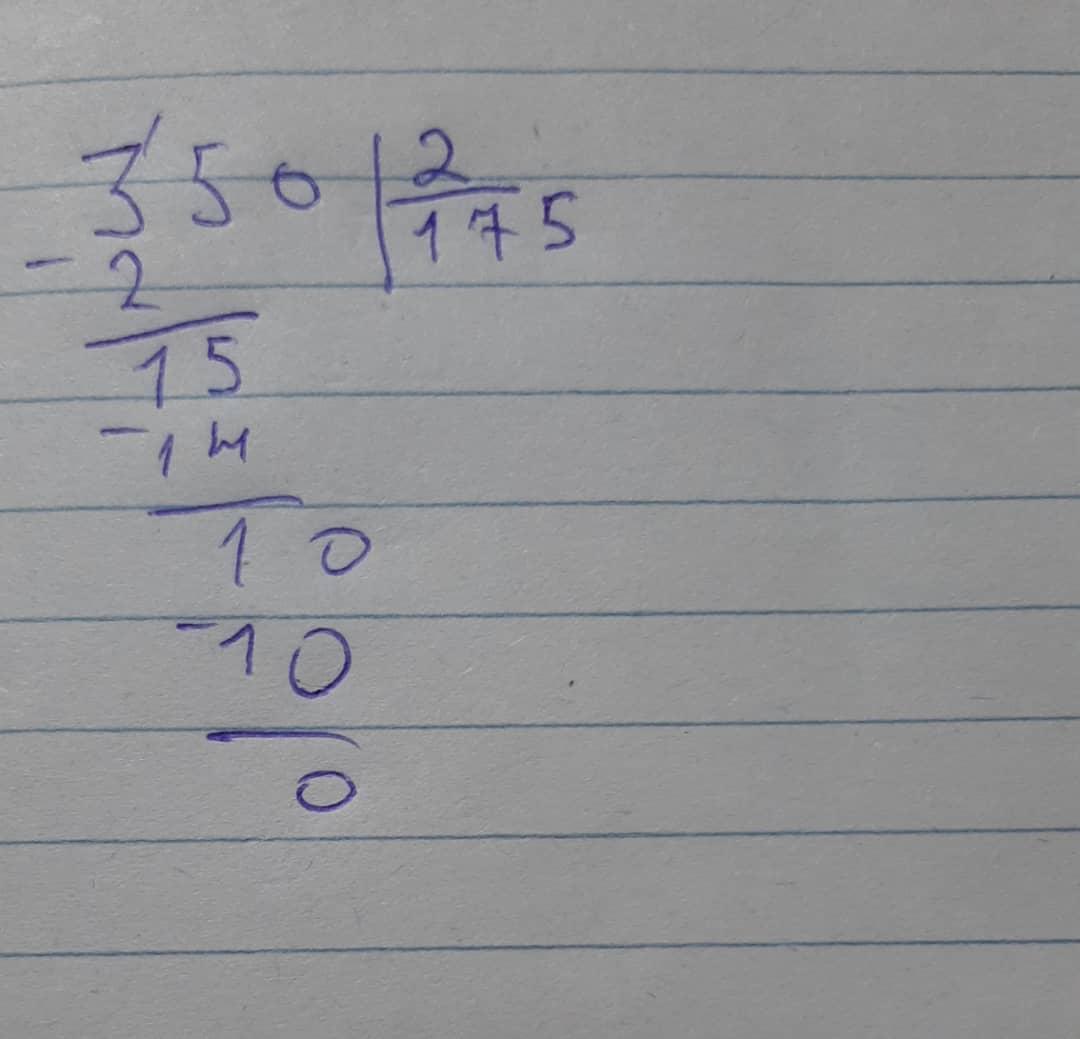 350 | 2
175
- 2
15
- 14
10
- 10
0